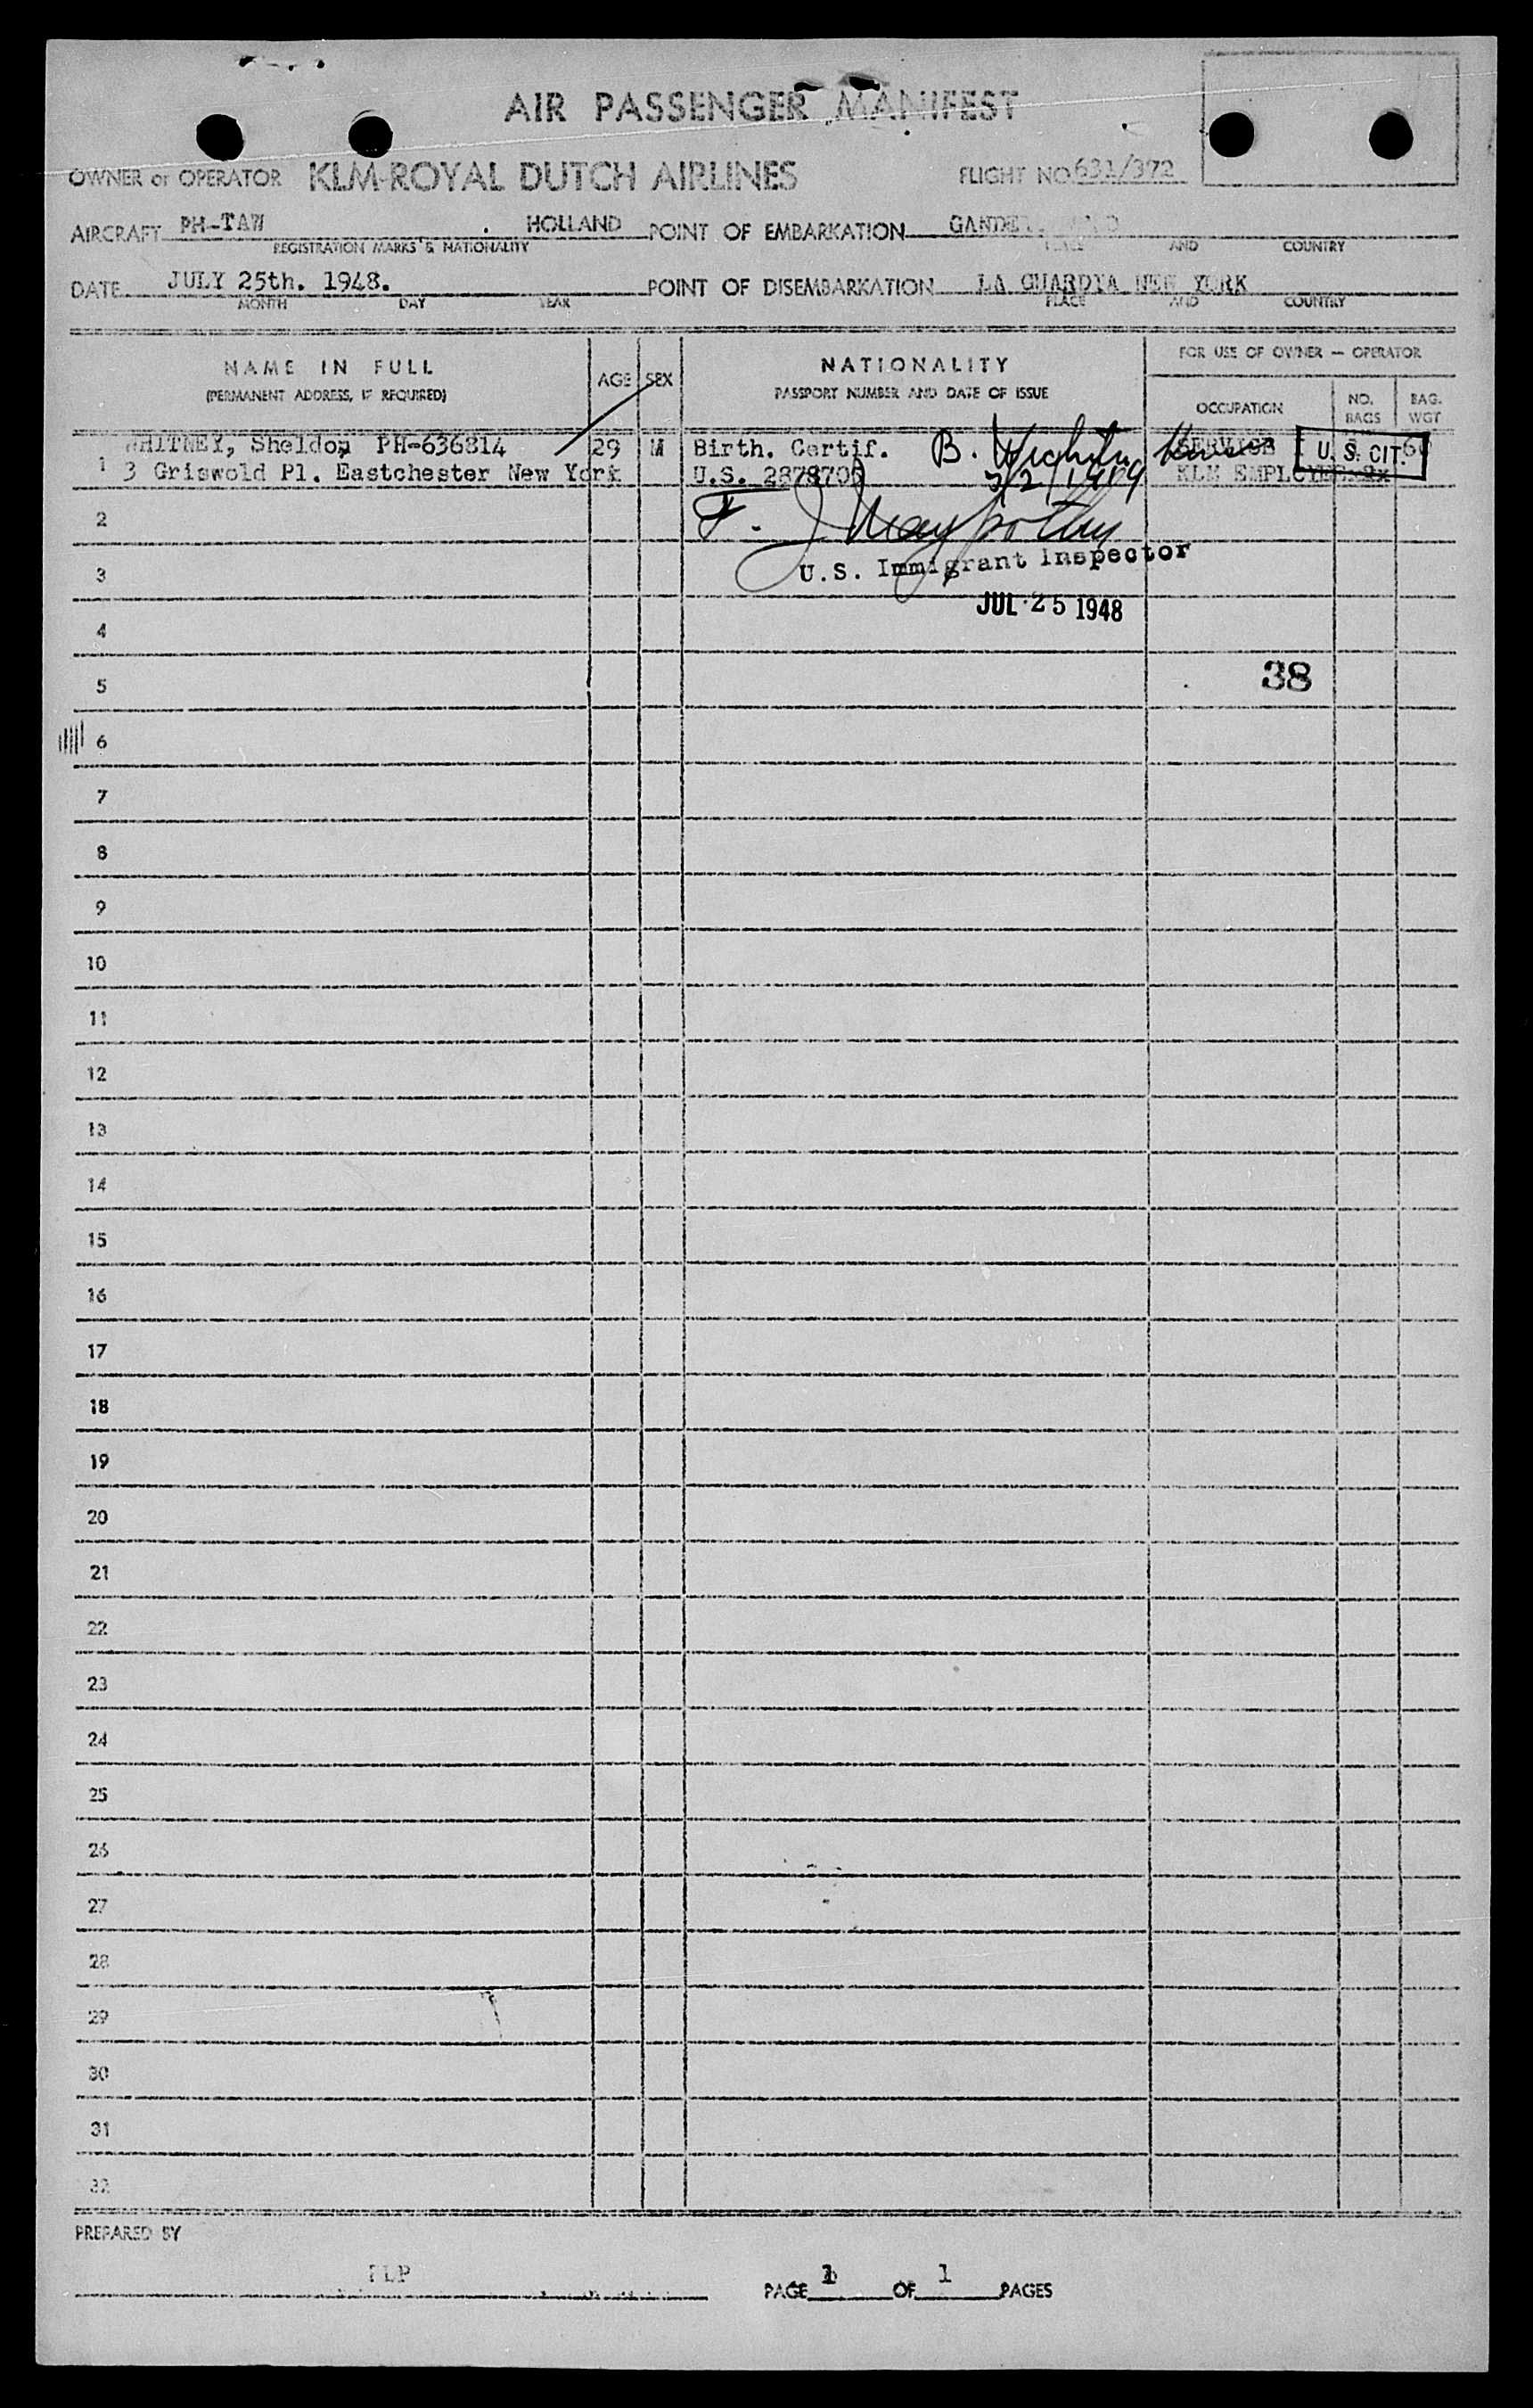 AIR PASSENGER MANIFEST
OWNER or OPERATOR KLM-ROYAL DUTCH AIRLINES FLIGHT NO 631/372
AIRCRAFT PH-TAW HOLLAND POINT OF EMBARKATION
REGISTRATION MARKS & NATIONALITY PLACE AND COUNTRY
DATE JULY 25th. 1948. POINT OF DISEMBARKATION LA GUARDYA NEW YORK
MONTH DAY YEAR PLACE AND COUNTRY
NAME IN FULL AGE SEX NATIONALITY FOR USE OF OWNER — OPERATOR
(PERMANENT ADDRESS, IF REQUIRED) PASSPORT NUMBER AND DATE OF ISSUE OCCUPATION NO. BAGS BAG. WGT
1 WHITNEY, Sheldon PH-636814 29 M Birth. Certif. B. Wichita, SERVICE U. S. CIT.
3 Griswold Pl. Eastchester New York U.S. 1919 KLM EMPLOYEE
2 F. J.
3 U.S. Immigrant Inspector
JUL 25 1948
4
5 38
6
7
8
9
10
11
12
13
14
15
16
17
18
19
20
21
22
23
24
25
26
27
28
29
30
31
32
PREPARED BY
PAGE 1 OF 1 PAGES